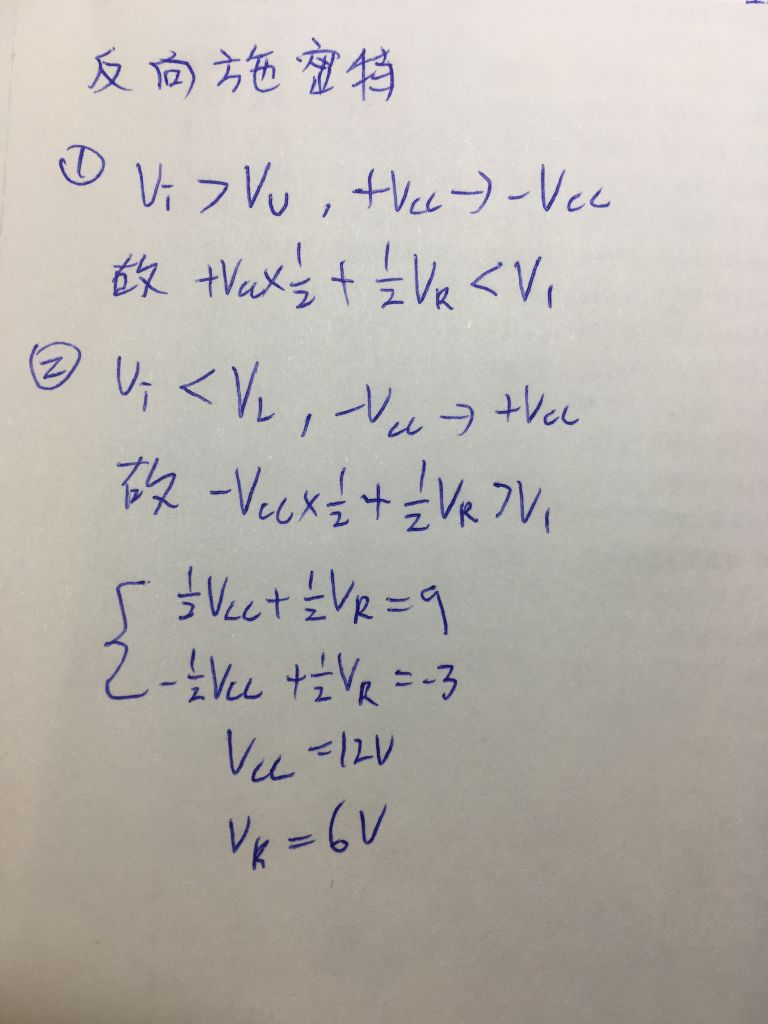 反向施密特
① Vi > VU , +Vcc → -Vcc
故 +Vcc×1/2 + 1/2 VR < V1
② Vi < VL , -Vcc → +Vcc
故 -Vcc×1/2 + 1/2 VR > V1
{ 1/2 Vcc + 1/2 VR = 9
-1/2 Vcc + 1/2 VR = -3
Vcc = 12V
VR = 6V